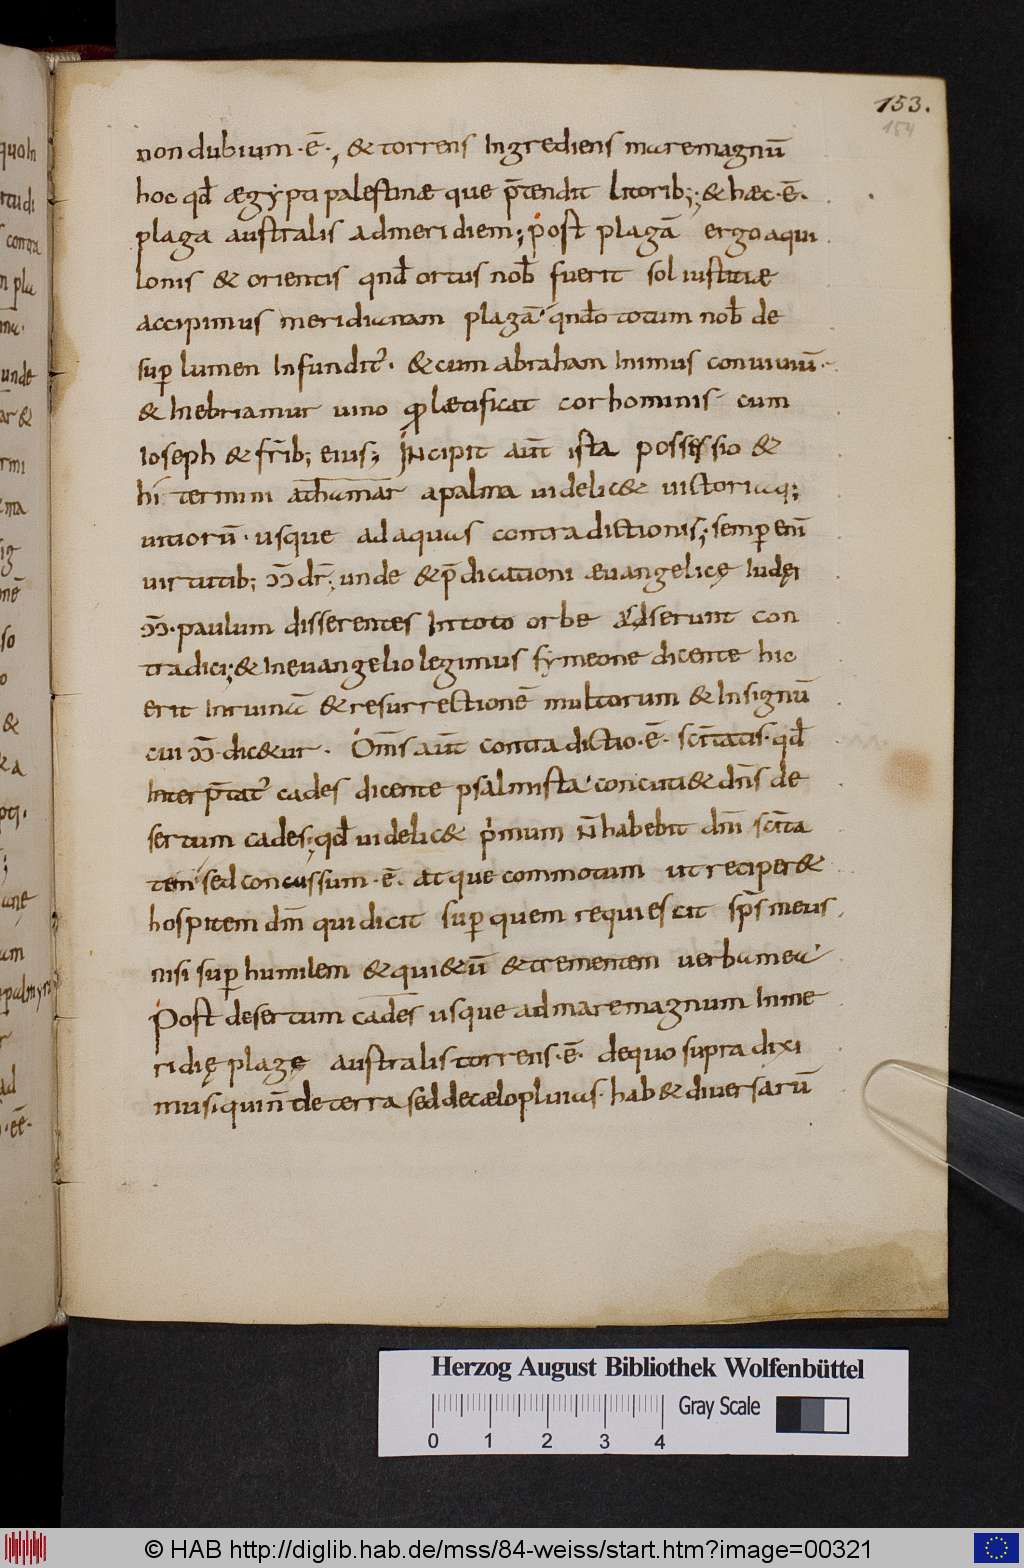 153.
154
non dubium·ē·, & torrens Ingrediens mare magnū
hoc qd̄ ægypti palestinæ que p̄tendit litorib;; & hæc·ē·
plaga australis ad meridiem; post plagā ergo aqui
lonis & orientis qnd̄ ortus nob̄ fuerit sol iustitiæ
accipimus meridianam plagā· qnd̄o totum nob̄ de
sup̱ lumen Infundit᷒· & cum abraham Inimus conuiuiū·
& Inebriamur uino ꝓ lætificat cor hominis cum
Ioseph & fr̄ib; eius; INcipit aūt ista possessio &
hi termini athamar a palma uidelic& uictoriaq;
uitiorū· usque ad aquas contradictionis; semp̱ enī
uirtutib; ↄↄ̄ dr̄; unde & p̄dicationi æuangelicę Iudęi
ↄↄ̄· paulum disserentes In toto orbe Adserunt con
tradici; & In euangelio legimus symeone dicente hic
erit In ruinā & resurrectionē multorum & In signū
cui ↄↄ̄· dic&ur· Om̄s aūt contradictio·ē· sc̄itatis· qd̄
Interp̄tat᷒ cades dicente psalmista· concuti& dn̄s de
sertum cades; qd̄ uidelic& p̍mum n̄ habebit dn̄i sc̄ita
tem· sed concussum·ē· atque commotum ut reciper&
hospitem dn̄m qui dicit sup̱ quem requiescit sp̄s meus,
nisi sup̱ humilem & qui&ū & trementem uerba mea·
Post desertum cades usque ad mare magnum In me
ridię plagę australis torrens·ē· de quo supra dixi
mus· qui n̄ de terra sed de cælo pluuias· hab& diuersarū
Herzog August Bibliothek Wolfenbüttel
Gray Scale
0 1 2 3 4
© HAB http://diglib.hab.de/mss/84-weiss/start.htm?image=00321